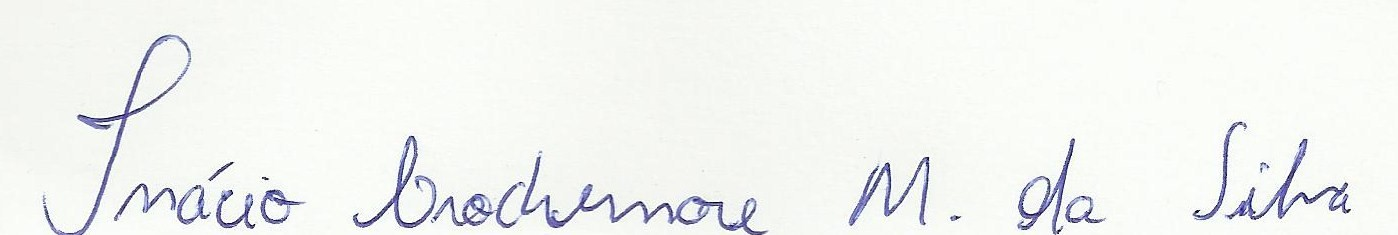 Inácio Brochemore M. da Silva